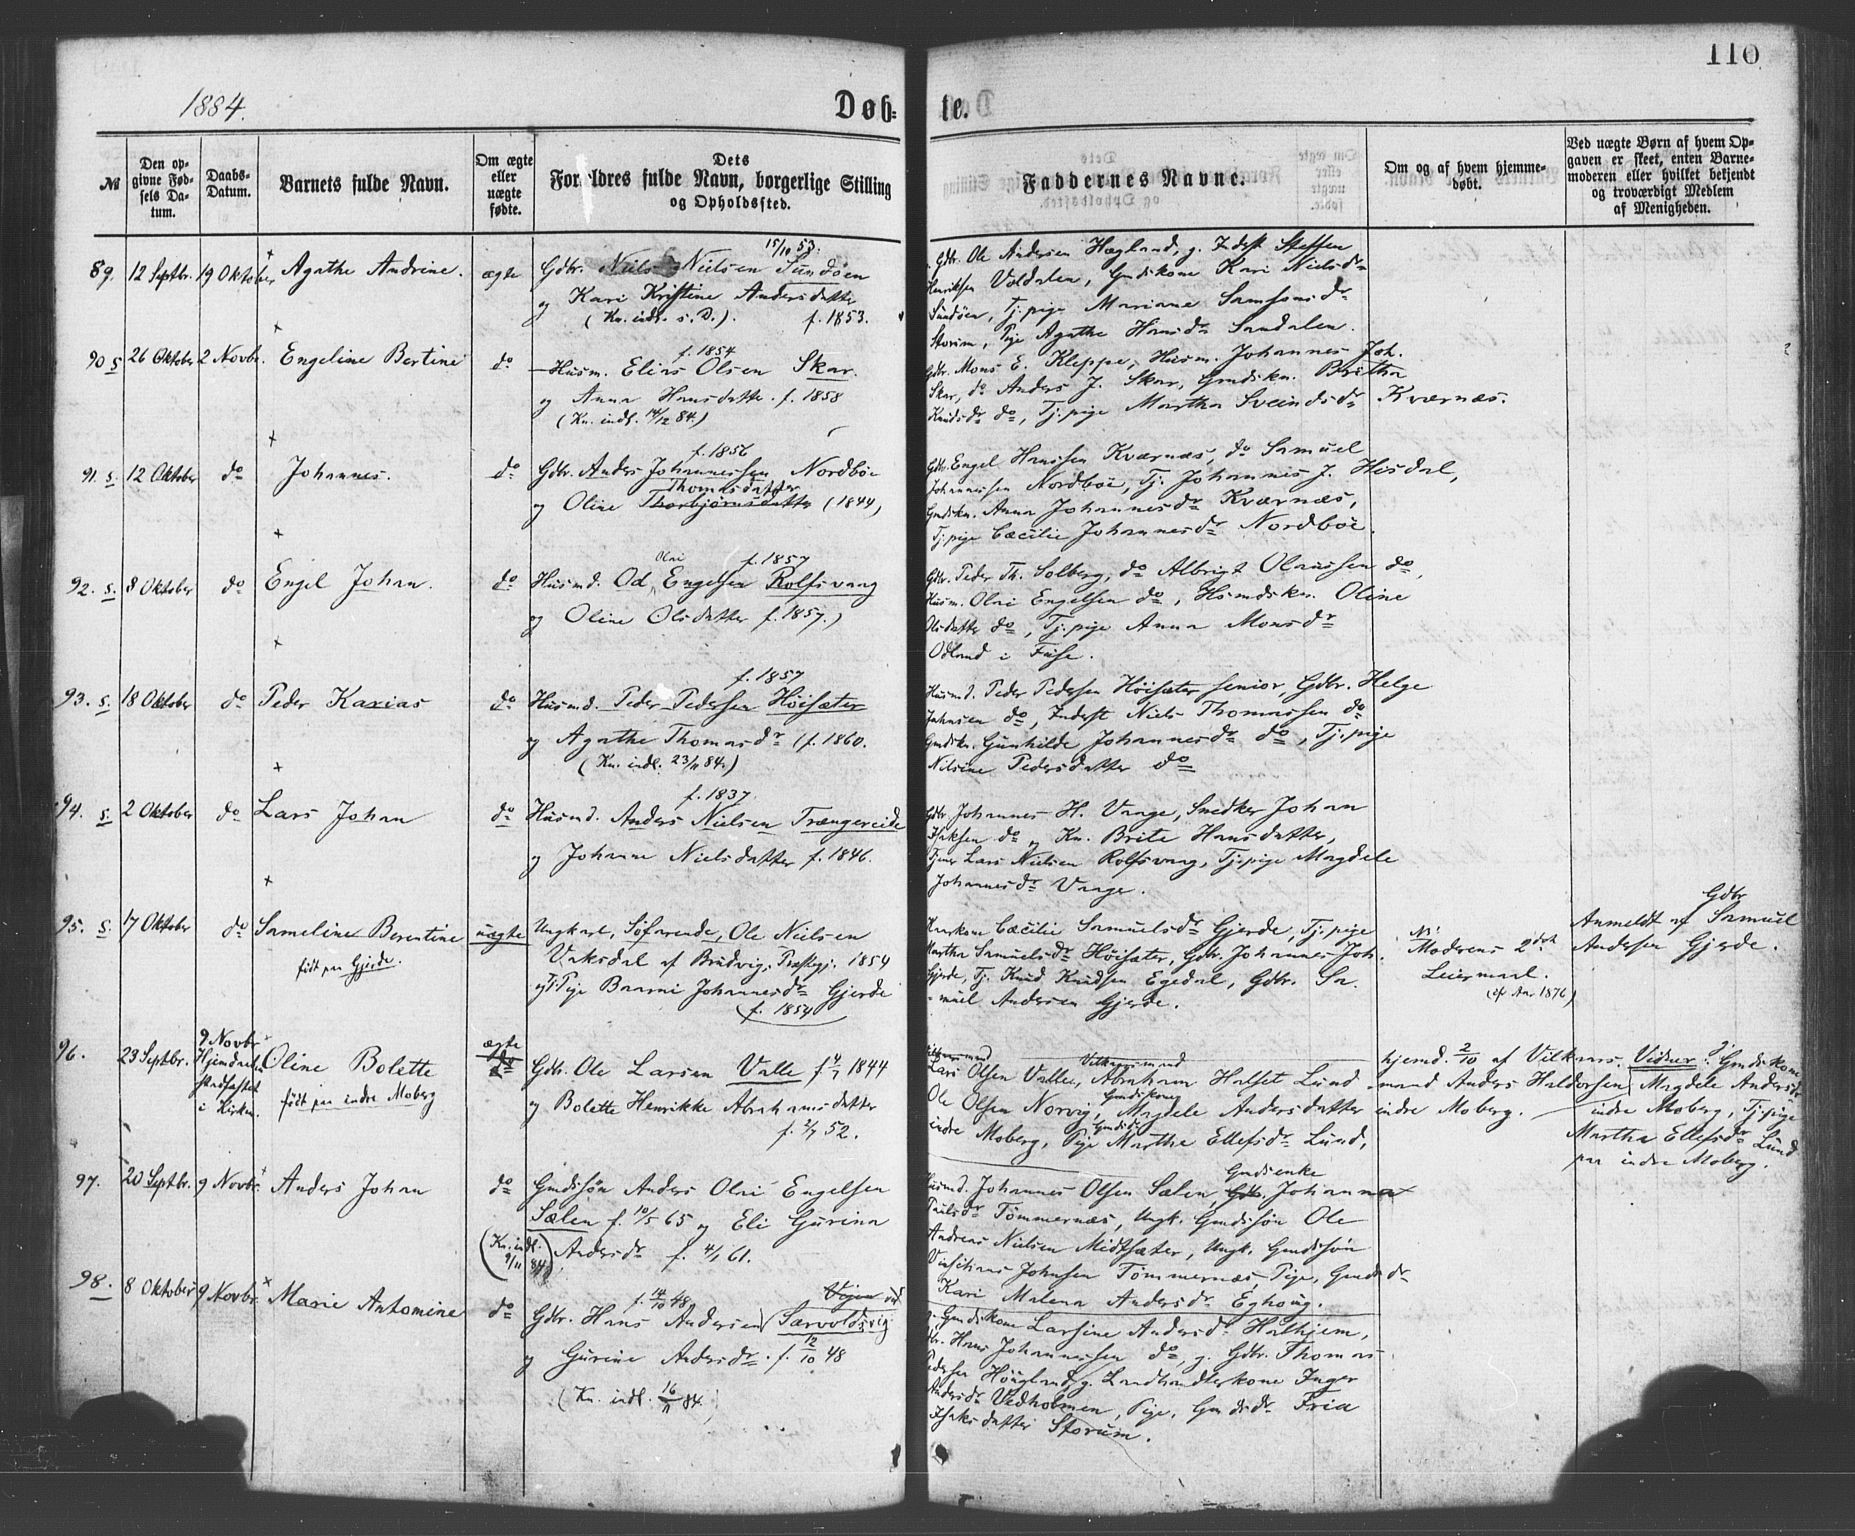 110
1884.
Døb-
te.
№
Den op-
givne Fød-
sels Da-
tum.
Daabs-
Datum.
Barnets fulde Navn.
Om ægte
eller
uægte
fødte.
Dets
Forældres fulde Navn, borgerlige Stilling
og Opholdssted.
Faddernes Navne.
Om og af hvem hjemme-
døbt.
Ved uægte Børn af hvem Op-
gaven er skeet, enten Barne-
moderen eller hvilket bekjendt
og troværdigt Medlem
af Menigheden.
89. 12 Septbr. 19 Oktober Agathe Andrine. ægte
15/10 53.
Gdbr. Niels Nielsen Sundöen
og Kari Kristine Andersdatter
(Kn. indl. s. D.). f. 1853.
Gdbr. Ole Andersen Hægland, g. Inderst Steffen
Henriksen Voldalen, Gmdskone Kari Nielsdr
Sundöen, Tj. pige Mariane Samsonsdr
Storum, Pige Agathe Hansdr Sandalen.
90 s 26 Oktober 2 Novbr. Engeline Bertine do
f. 1854
Husm. Elias Olsen Skar.
og Anna Hansdatter. f. 1858
(Kn. indl. 14/12 84.)
Gdbr. Mons E. Kleppe, Husm. Johannes Joh.
Skar, do Anders J. Skar, Gmdskn. Britha
Knudsdr do, Tj. pige Martha Sveindsdr Kværnæs.
91. s. 12 Oktober do Johannes. do
f. 1856
Gdbr. Anders Johannessen Nordböe
Thomasdatter
og Oline Thorbjörnsdatter (1844)
Gdbr. Engel Hanssen Kværnæs, do Samuel
Johannessen Nordböe, Tj. Johannes J. Hisdal,
Gmdskn. Anna Johannesdr Kværnæs,
Tj. pige Cæcilie Johannesdr Nordböe.
92. s. 8 Oktober do Engel Johan. do
Olai f. 1857
Husmd. Od Engelsen Rolfsvaag
og Oline Olsdatter f. 1857.)
Gdbr. Peder Th. Solberg, do Albrigt Olaussen do,
Husm. Olai Engelsen do, Husmdskn. Oline
Olsdatter do, Tj. pige Anna Monsdr
Odland i Fuse.
93. s. 18 Oktober do Peder Karias do
f. 1857
Husmd. Peder Pedersen Höisæter
og Agathe Thomasdr (f. 1860.
(Kn. indl. 23/11 84.)
Husmd. Peder Pedersen Höisæter senior, Gdbr. Helge
Johnsen do, Inderst Niels Thomassen do
Gmdskn. Gunhilde Johannesdr do, Tj. pige
Nilsine Pedersdatter do
94. s. 2 Oktober do Lars Johan do
f. 1837.
Husmd. Anders Nielsen Trængereide
og Johanne Nielsdatter f. 1846.
Gdbr Johannes H. Vaage, Snedker Johan
Isaksen do og Kn. Brite Hansdatter,
Tjener Lars Nielsen Rolfsvaag, Tj. pige Magdele
Johannesdr Vaage.
95. s. 17 Oktober do Sameline Berentine uægte
födt paa Gjerde.
Ungkarl, Söfarende, Ole Nielsen
Vaksdal af Bruvig, Præstegj. 1854
og Tj. Pige Baarni Johannesdr Gjerde
f. 1854
Kaarkone Cæcilie Samuelsdr Gjerde, Tj. pige
Martha Samuelsdr Höisæter, Gdbr. Johannes Joh.
Gjerde, Tj. Knud Knudsen Egedal, Gdbr. Sa-
muel Andersen Gjerde.
Moderens 2det
Leiermaal.
(cf Aar 1876)
Gdbr
Anmeldt af Samuel
Andersen Gjerde.
96. 23 Septbr. 9 Novbr Oline Bolette ægte
Hjemdaaben
stadfæstet
i Kirken.
födt paa indre Moberg
Gdbr. Ole Larsen Valle f 4/7 1844
og Bolette Henrikke Abrahamsdatter
f. 2/7 52.
Lars Olsen Valle, Abraham Halset Lund
Ole Olsen Norvig, Gmdskone Magdele Andersdatter
indre Moberg, Pige Marthe Ellefsdr Lund,
hjemd. 2/10 af Vilkaars-
mand Anders Haldorsen
indre Moberg.
Vidner: Gmdskone
Magdele Andersdr
indre Moberg, Tj. pige
Martha Ellefsdr Lund
paa indre Moberg.
97. 20 Septbr. 9 Novbr. Anders Johan do
Gmdssön Anders Olai Engelsen
Sælen f. 10/5 65 og Eli Gurina
(Kn. indl. 9/11 84) Andersdr f. 4/1 61.
Husmd. Johannes Olsen Sælen, Gmdsenke Johanna
Paulsdr Tömmernæs, Ungk. Gmdssön Ole
Andreas Nielsen Midtsæter, Ungk. Gmdssön
Johnsen Tömmernæs, Pige, Gmdsdr
Kari Malena Andersdr Eghoug.
98. 8 Oktober 9 Novbr. Marie Antomine do
f. 14/10 48
Gdbr. Hans Andersen (Særvoldsvig
og Gurine Andersdr. f. 12/10 48
(Kn. indl. 16/11 84.
Gmdskone Larsine Andersdr Halhjem,
Gdbr. Hans Johannessen do, g. Gdbr. Thomas
Pedersen Höugland, g. Landhandlerkone Inger
Andersdr Vedholmen, Pige, Gmdsdr Fria
Isaksdatter Storum.